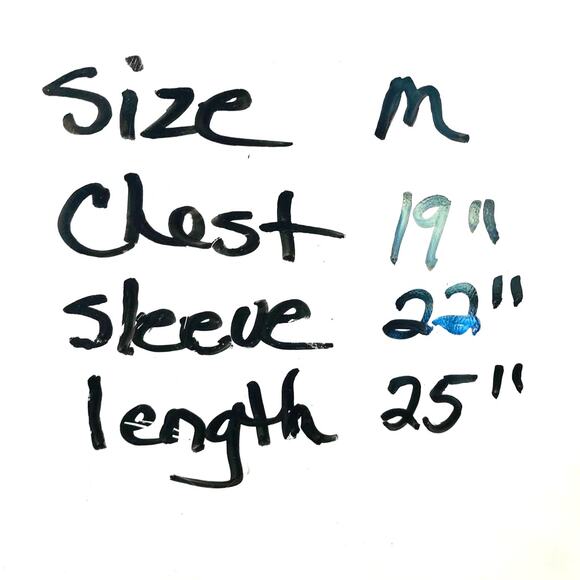 Size M
Chest 19"
Sleeve 22"
length 25"